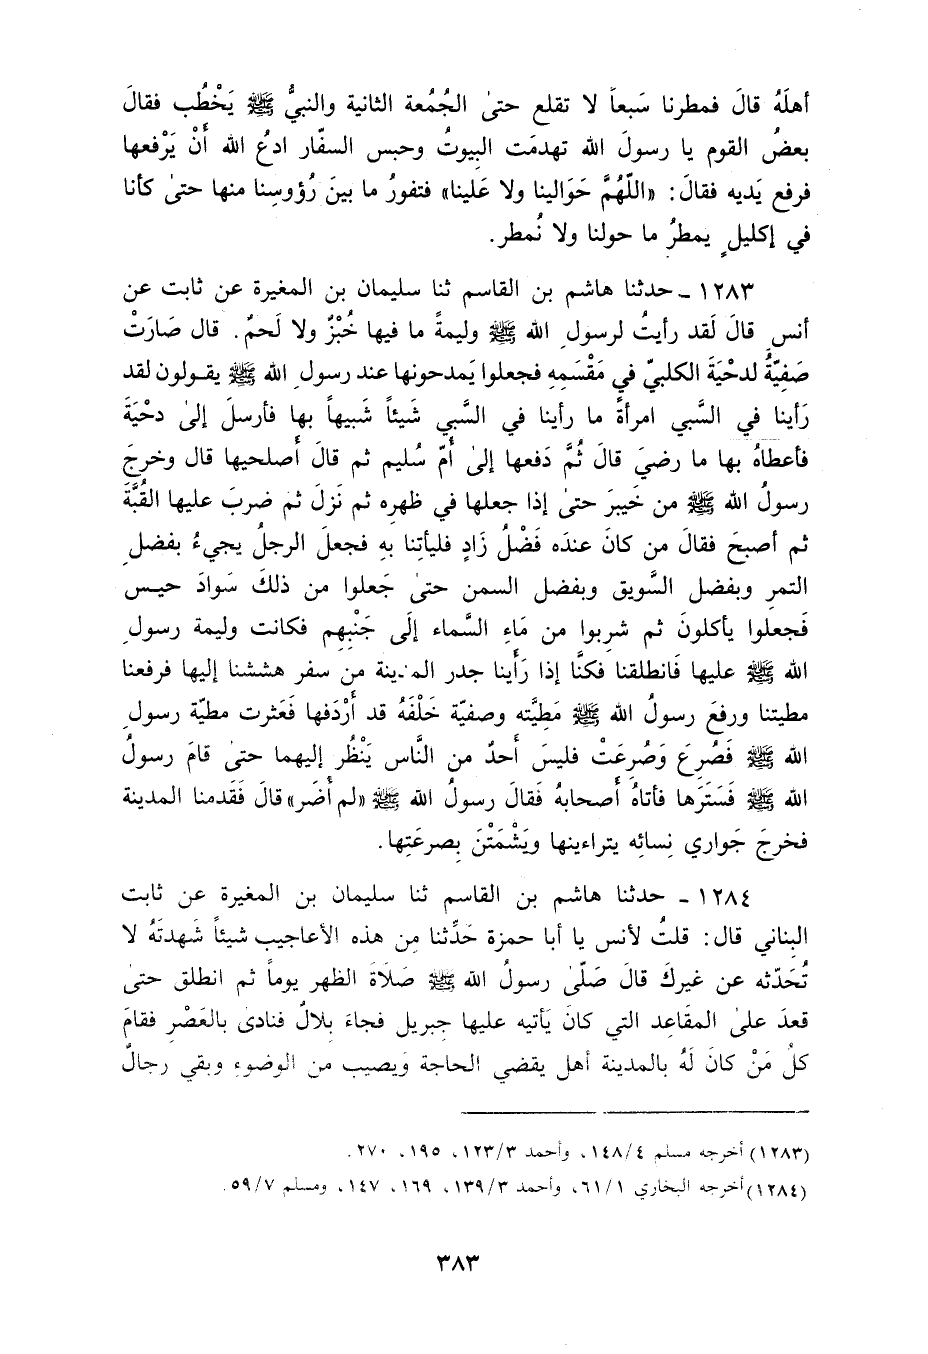 أهلَهُ قالَ فمطرنا سَبعاً لا تقلع حتىٰ الجُمُعة الثانية والنبيُّ ﷺ يَخْطُب فقالَ
بعضُ القوم يا رسولَ الله تهدمَت البيوتُ وحبس السفّار ادعُ الله أَنْ يَرْفعها
فرفع يَديه فقالَ: «اللّهُمَّ حَوَالينا ولا عَلينا» فتفورُ ما بينَ رُؤوسِنا منها حتىٰ كأنا
في إكليلٍ يمطرُ ما حولنا ولا نُمطر.
١٢٨٣ ـ حدثنا هاشم بن القاسم ثنا سليمان بن المغيرة عن ثابت عن
أنسٍ قالَ لَقد رأيتُ لرسولِ الله ﷺ وليمةً ما فيها خُبْزٌ ولا لَحمُ. قال صَارَتْ
صَفِيّةُ لدحْيَةَ الكلبيّ في مَقْسَمِهِ فجعلوا يَمدحونها عند رسولِ الله ﷺ يقولون لقد
رَأينا في السَّبي امرأةً ما رأينا في السَّبي شَيئاً شَبيهاً بها فأرسلَ إلىٰ دحْيَةَ
فأعطاهُ بها ما رضيَ قالَ ثُمَّ دَفعها إلىٰ أُمّ سُليم ثم قالَ أَصلحيها قال وخرجَ
رسولُ الله ﷺ من خَيبرَ حتىٰ إذا جعلها في ظهرِه ثم نَزلَ ثم ضربَ عليها القُبَّةَ
ثم أصبحَ فقالَ من كانَ عندَه فَضْلُ زَادٍ فليأتِنا بهِ فجعلَ الرجلُ يجيءُ بفضلِ
التمرِ وبفضل السَّويق وبفضل السمن حتىٰ جَعلوا من ذلكَ سَوادَ حيس
فَجعلوا يأكلونَ ثم شرِبوا من مَاءِ السَّماء إلَى جَنْبِهِم فكانت وليمة رسولِ
الله ﷺ عليها فَانطلقنا فكنَّا إذا رَأَينا جدر المدينة من سفر هششنا إليها فرفعنا
مطيتنا ورفعَ رسولُ الله ﷺ مَطِيَّته وصفيّة خَلْفَهُ قد أَرْدَفها فَعَثرت مطيّة رسولِ
الله ﷺ فَصُرِعَ وَصُرِعَتْ فليسَ أَحدٌ من النَّاس يَنْظُر إليهما حتىٰ قامَ رسولُ
الله ﷺ فَسَتَرَها فأتاهُ أَصحابهُ فَقالَ رسولُ الله ﷺ «لم أُضَر» قالَ فَقَدمنا المدينة
فخرجَ جَواري نِسائه يتراءينها ويَشْمَتْنَ بِصرعَتِها.
١٢٨٤ ـ حدثنا هاشم بن القاسم ثنا سليمان بن المغيرة عن ثابت
البناني قال: قلتُ لأنس يا أبا حمزة حَدِّثنا مِن هذه الأعاجيب شيئاً شَهدتَهُ لا
تُحَدّثه عن غيركَ قالَ صَلّىٰ رسولُ الله ﷺ صَلَاةَ الظهر يوماً ثم انطلق حتىٰ
قعدَ علىٰ المقَاعد التي كانَ يَأتيه عليها جِبريل فجاءَ بِلالٌ فنادىٰ بالعَصْرِ فقامَ
كلُ مَنْ كانَ لَهُ بالمدينة أهل يقضي الحاجة وَيصيب من الوضوءِ وبقي رجالٌ
(١٢٨٣) أخرجه مسلم ١٤٨/٤، وأحمد ١٢٣/٣، ١٩٥، ٢٧٠.
(١٢٨٤) أخرجه البخاري ٦١/١، وأحمد ١٣٩/٣، ١٦٩، ١٤٧، ومسلم ٥٩/٧.
٣٨٣